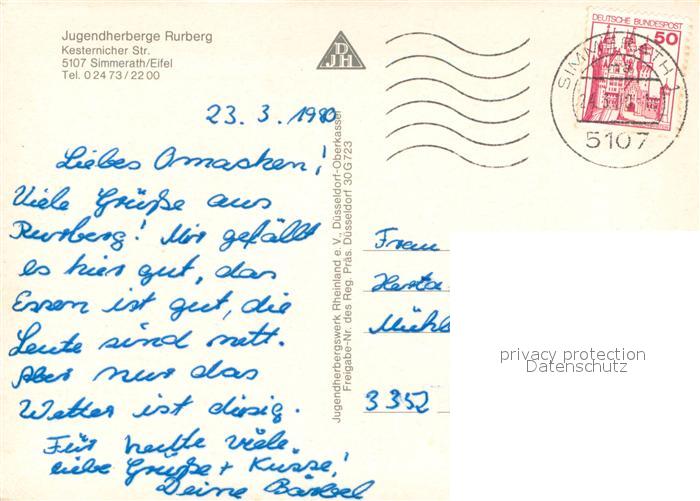 Jugendherberge Rurberg
Kesternicher Str.
5107 Simmerath/Eifel
Tel. 0 24 73 / 22 00
DJH
DEUTSCHE BUNDESPOST
50
SIMMERATH 1
5107
23. 3. 1980
Liebes Omasken!
Viele Grüße aus
Rurberg! Mir gefällt
es hier gut, das
Essen ist gut, die
Leute sind nett.
Aber nur das
Wetter ist diesig.
Für heute viele
liebe Grüße + Küsse!
Deine Bärbel
Jugendherbergswerk Rheinland e. V., Düsseldorf-Oberkassel
Freigabe-Nr. des Reg. Präs. Düsseldorf 30 G 723
Frau
Herta
Mühl
3352
privacy protection
Datenschutz